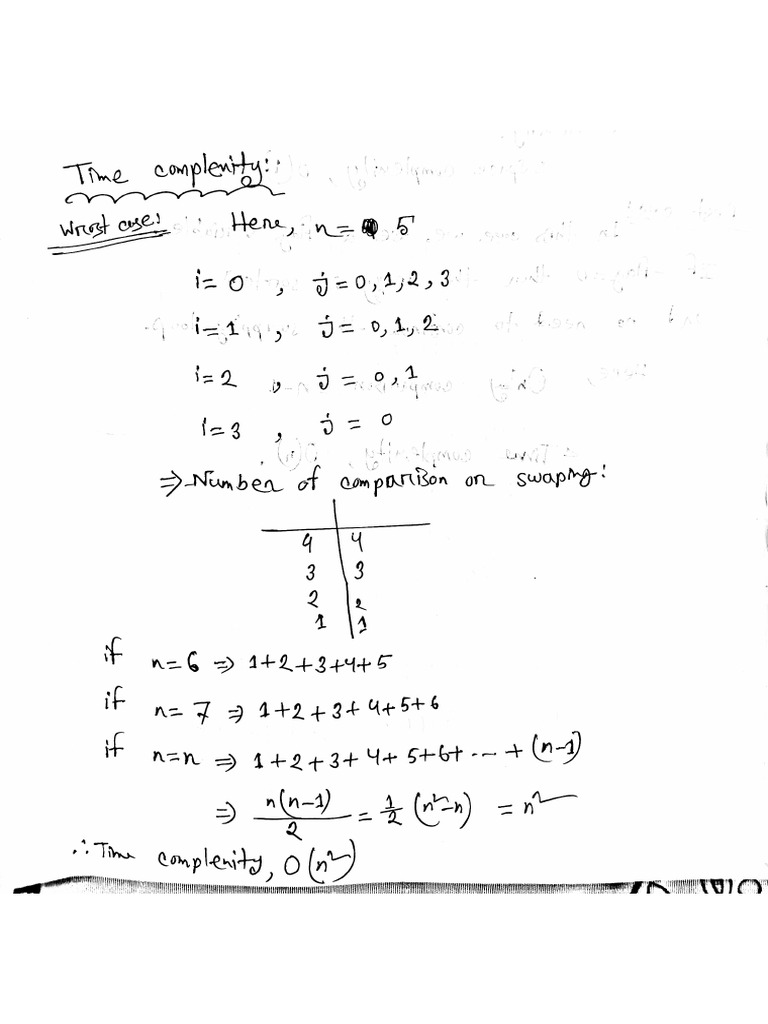 Time complexity:
Wrost case: Here, n = 5
i = 0 , j = 0, 1, 2, 3
i = 1 , j = 0, 1, 2
i = 2 , j = 0, 1
i = 3 , j = 0
⇒ Number of comparison or swaping:
4 | 4
3 | 3
2 | 2
1 | 1
if n = 6 ⇒ 1+2+3+4+5
if n = 7 ⇒ 1+2+3+4+5+6
if n = n ⇒ 1+2+3+4+5+6+ ... + (n-1)
⇒ n(n-1)/2 = 1/2 (n²-n) = n²
∴ Time complexity, O(n²)